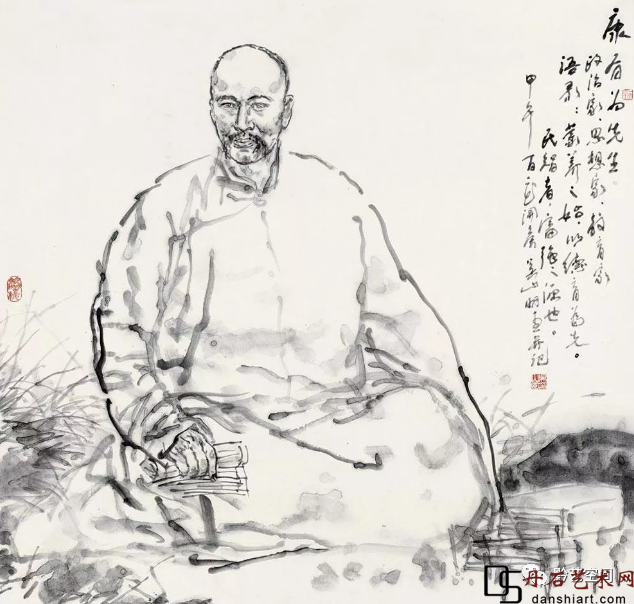 康有为先生。
政治家、思想家、教育家
语录：蒙养之始，以德育为先。
民智者，富强之源也。
甲午 吴山明画并记
丹石艺术网
danshiart.com